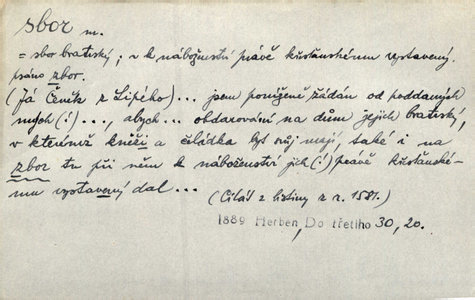 sbor m.
= sbor bratrský; v k náboženství právě křesťanskému vystavený.
psáno zbor.
(Já Čeněk z Lipého)... jsem poníženě žádán od poddaných
mých (!)..., abych... obdarování na dům jejich bratrský,
v kterémž kněží a čeládka byt svůj mají, také i na
zbor tu při něm k náboženství jich (!) právě křesťanské-
mu vystavený dal...
(Citát z listiny z r. 1581.)
1889 Herben, Do třetího 30, 20.